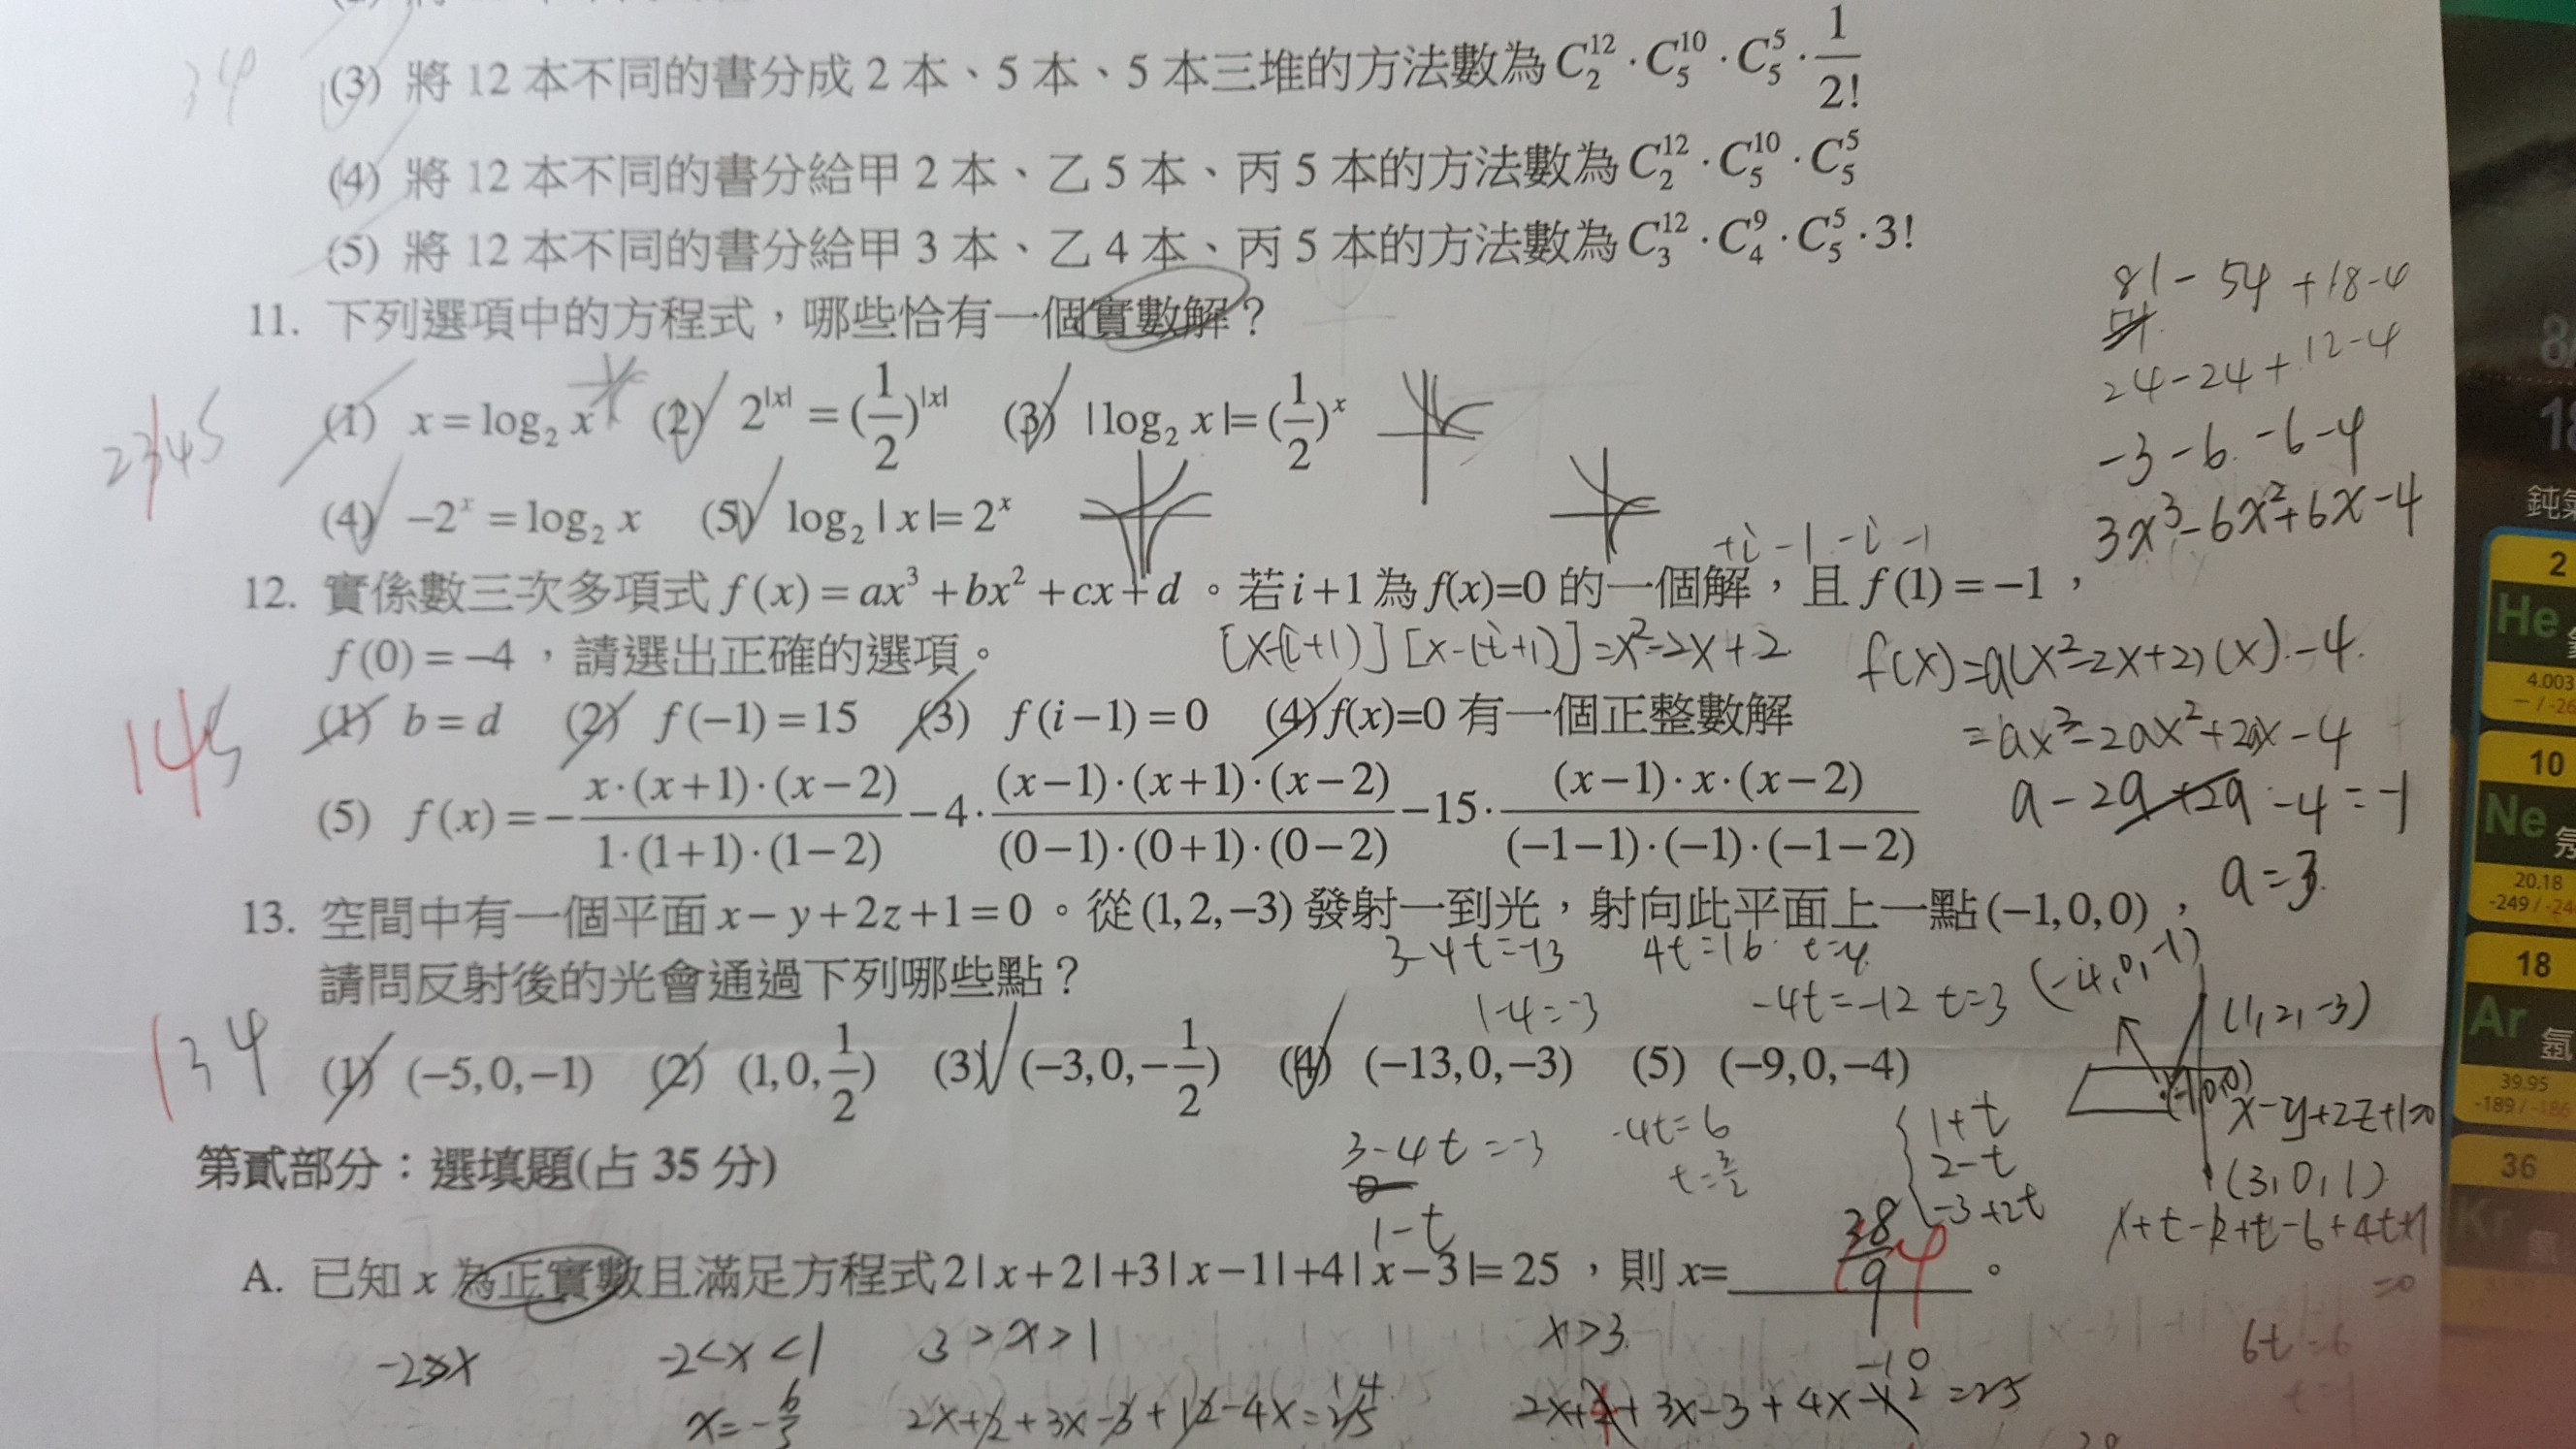 34
(3) 將 12 本不同的書分成 2 本、5 本、5 本三堆的方法數為 $C_2^{12} \cdot C_5^{10} \cdot C_5^5 \cdot \frac{1}{2!}$
(4) 將 12 本不同的書分給甲 2 本、乙 5 本、丙 5 本的方法數為 $C_2^{12} \cdot C_5^{10} \cdot C_5^5$
(5) 將 12 本不同的書分給甲 3 本、乙 4 本、丙 5 本的方法數為 $C_3^{12} \cdot C_4^9 \cdot C_5^5 \cdot 3!$
11. 下列選項中的方程式，哪些恰有一個實數解？
(1) $x = \log_2 x$ (2) $2^{|x|} = (\frac{1}{2})^{|x|}$ (3) $|\log_2 x| = (\frac{1}{2})^x$
2345
(4) $-2^x = \log_2 x$ (5) $\log_2 |x| = 2^x$
81-54+18-4
24-24+12-4
-3-6-6-4
3x³-6x²+6x-4
+i-1 -i-1
12. 實係數三次多項式 $f(x) = ax^3 + bx^2 + cx + d$。若 $i+1$ 為 $f(x)=0$ 的一個解，且 $f(1) = -1$，
$f(0) = -4$，請選出正確的選項。
[x-(i+1)][x-(-i+1)]=x²-2x+2
f(x)=a(x²-2x+2)(x)-4
=ax³-2ax²+2ax-4
a-2a+2a-4=-1
a=3
145
(1) $b = d$ (2) $f(-1) = 15$ (3) $f(i-1) = 0$ (4) $f(x)=0$ 有一個正整數解
(5) $f(x) = -\frac{x \cdot (x+1) \cdot (x-2)}{1 \cdot (1+1) \cdot (1-2)} - 4 \cdot \frac{(x-1) \cdot (x+1) \cdot (x-2)}{(0-1) \cdot (0+1) \cdot (0-2)} - 15 \cdot \frac{(x-1) \cdot x \cdot (x-2)}{(-1-1) \cdot (-1) \cdot (-1-2)}$
13. 空間中有一個平面 $x - y + 2z + 1 = 0$。從 $(1, 2, -3)$ 發射一到光，射向此平面上一點 $(-1, 0, 0)$，
請問反射後的光會通過下列哪些點？
3-4t=-13 4t=16 t=4
1-4=-3 -4t=-12 t=3
(-4,0,-1)
(1,2,-3)
134
(1) $(-5, 0, -1)$ (2) $(1, 0, \frac{1}{2})$ (3) $(-3, 0, -\frac{1}{2})$ (4) $(-13, 0, -3)$ (5) $(-9, 0, -4)$
(-1,0,0)
x-y+2z+1=0
(3,0,1)
3-4t=-3
1-t
-4t=6
t=3/2
1+t
2-t
-3+2t
6t=6
第貳部分：選填題(占 35 分)
A. 已知 x 為正實數且滿足方程式 $2|x+2|+3|x-1|+4|x-3|=25$，則 x=______。
38/9
4
-2<x<1 3>x>1 x>3
2x+2+3x-3+12-4x=25
14
-10
2x+4+3x-3+4x-12=25
2
He
4.003
10
Ne
20.18
18
Ar
39.95
36
Kr